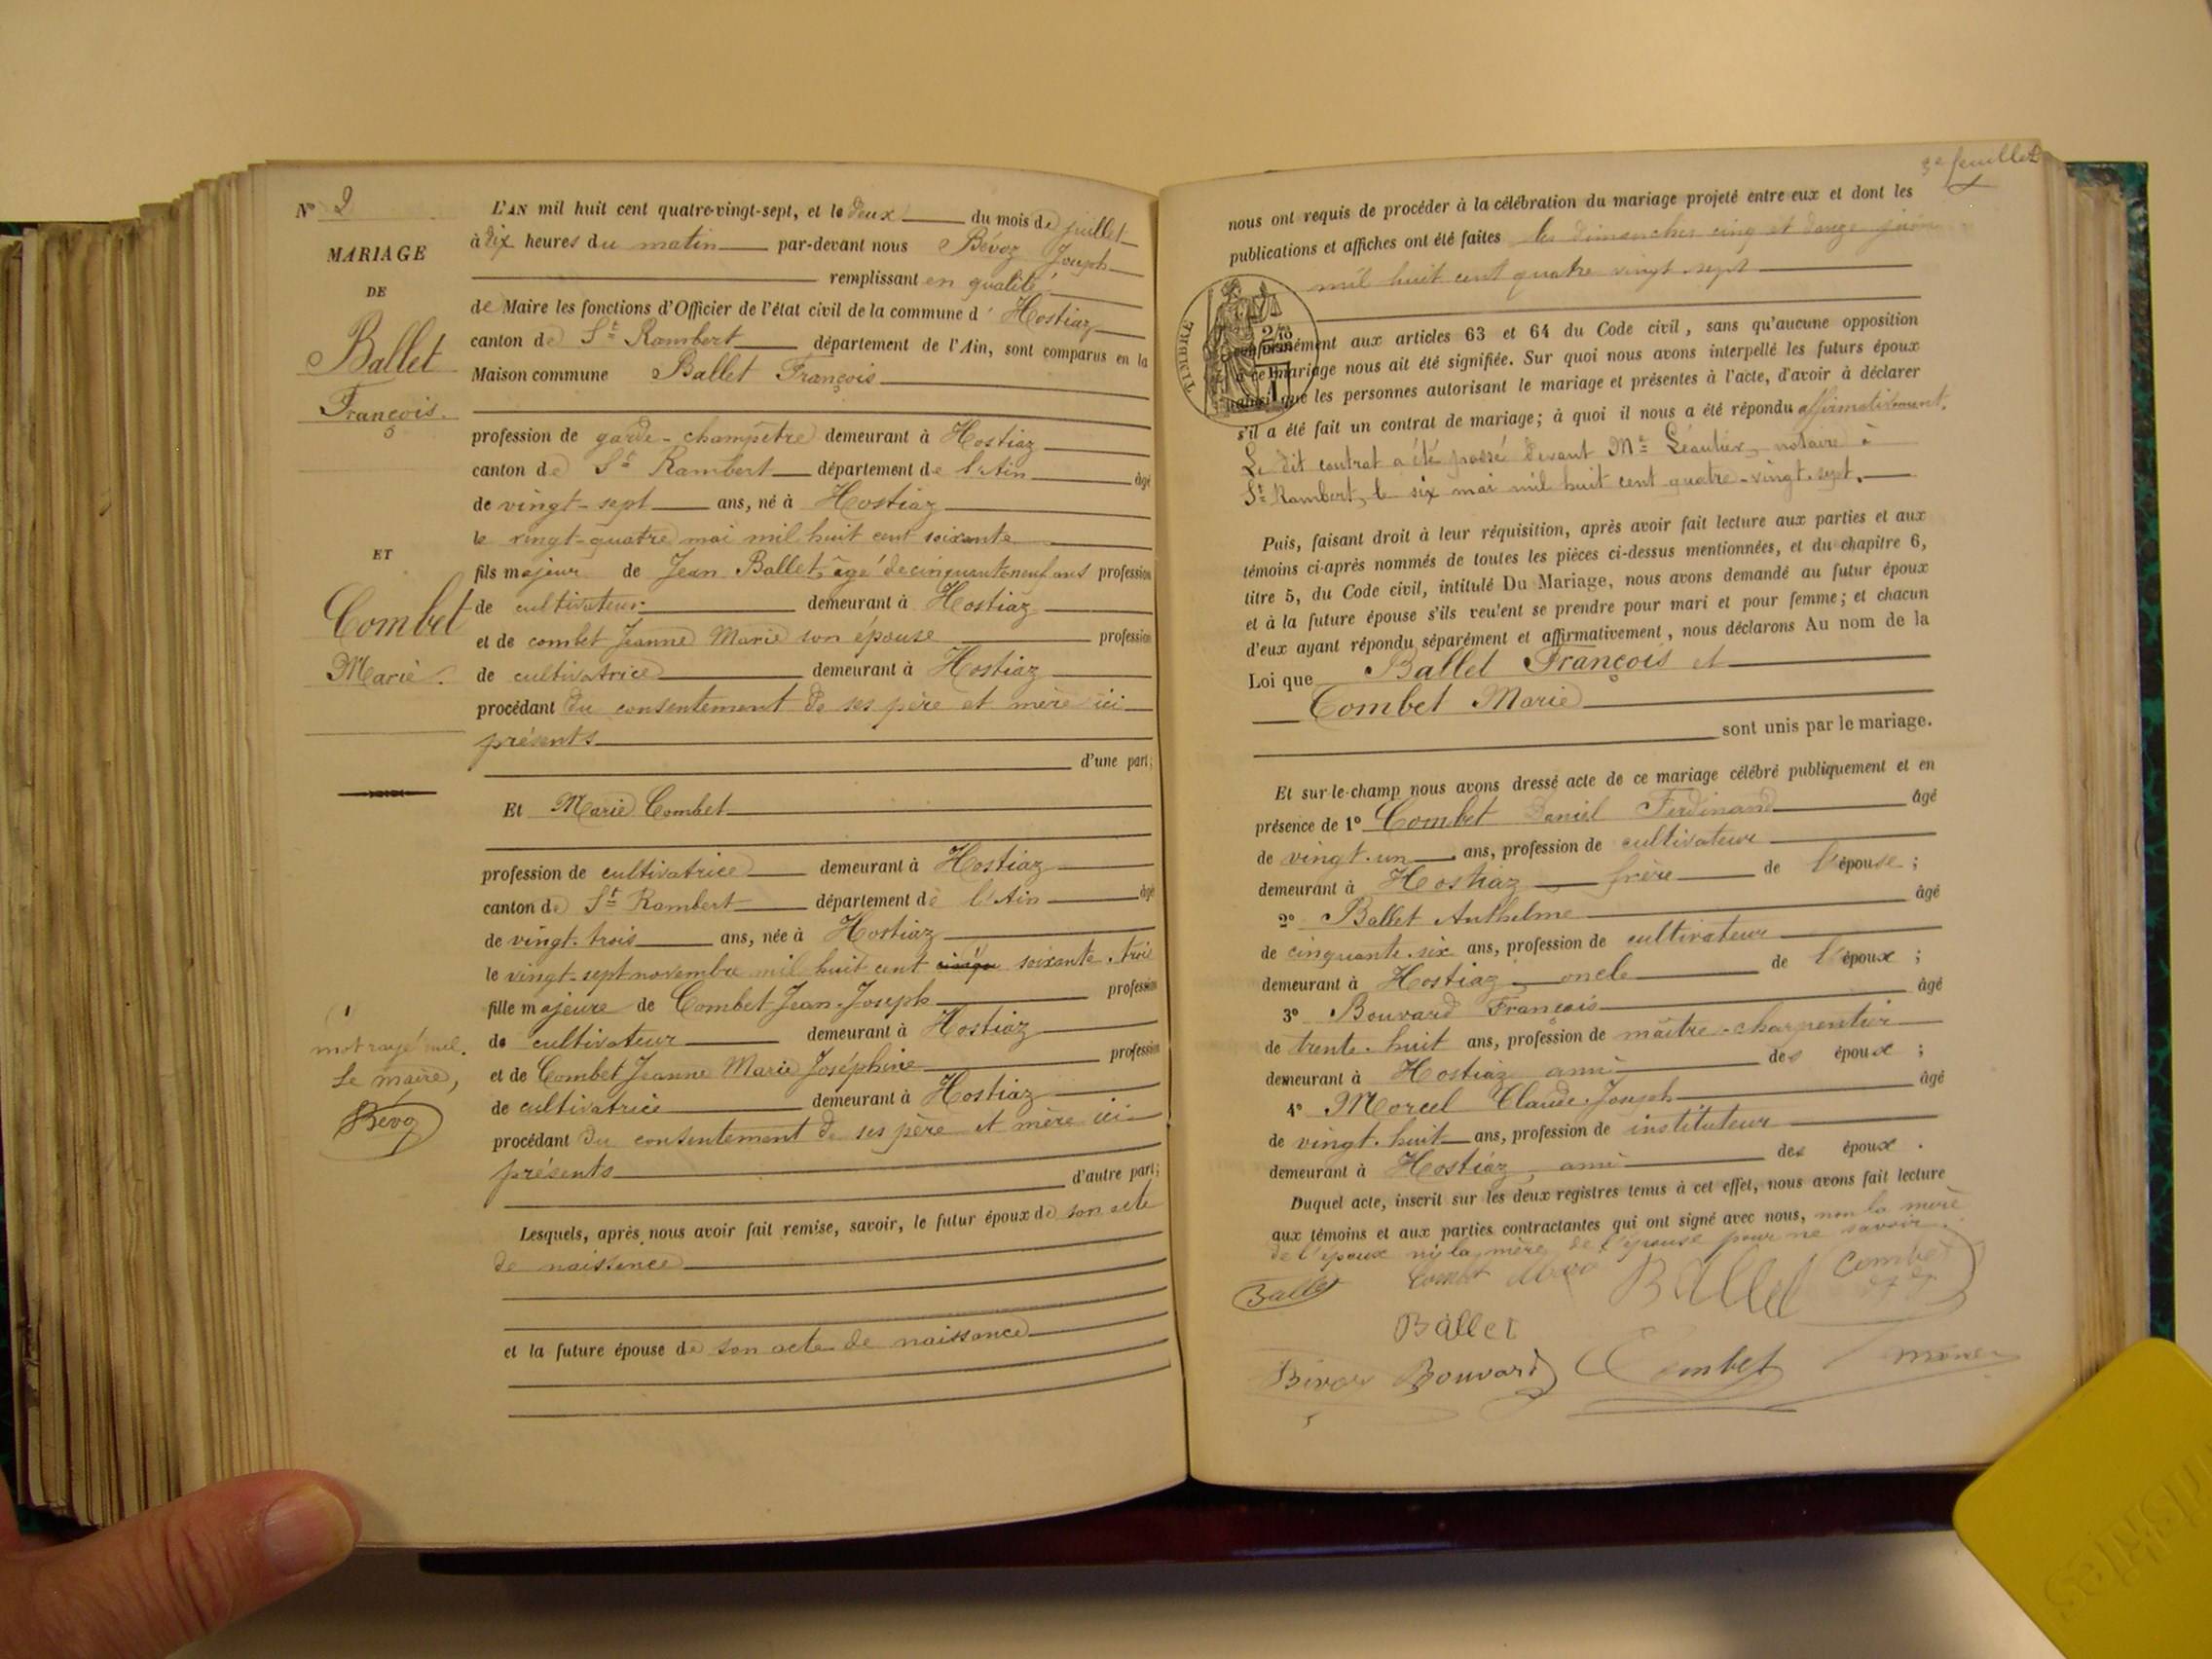 Nº 2
MARIAGE
DE
Ballet
François.
ET
Combet
Marie.
mot rayé nul.
Le maire,
Bévoz
L'AN mil huit cent quatre-vingt-sept, et le deux du mois de juillet
à dix heures du matin par-devant nous Bévoz Joseph
remplissant en qualité
de Maire les fonctions d'Officier de l'état civil de la commune d'Hostiaz
canton de St Rambert département de l'Ain, sont comparus en la
Maison commune Ballet François
profession de garde-champêtre demeurant à Hostiaz
canton de St Rambert département de l'Ain âgé
de vingt-sept ans, né à Hostiaz
le vingt-quatre mai mil huit cent soixante
fils majeur de Jean Ballet, âgé de cinquante neuf ans profession
de cultivateur demeurant à Hostiaz
et de combet Jeanne Marie son épouse profession
de cultivatrice demeurant à Hostiaz
procédant du consentement de ses père et mère ici
présents
d'une part;
Et Marie Combet
profession de cultivatrice demeurant à Hostiaz
canton de St Rambert département de l'Ain âgé
de vingt-trois ans, née à Hostiaz
le vingt-sept novembre mil huit cent soixante-trois
fille majeure de Combet Jean-Joseph profession
de cultivateur demeurant à Hostiaz
et de Combet Jeanne Marie Joséphine profession
de cultivatrice demeurant à Hostiaz
procédant du consentement de ses père et mère ici
présents
d'autre part;
Lesquels, après nous avoir fait remise, savoir, le futur époux de son acte
de naissance
et la future épouse de son acte de naissance
3e feuillet
nous ont requis de procéder à la célébration du mariage projeté entre eux et dont les
publications et affiches ont été faites les dimanches cinq et douze juin
mil huit cent quatre vingt-sept
TIMBRE
conformément aux articles 63 et 64 du Code civil, sans qu'aucune opposition
à ce mariage nous ait été signifiée. Sur quoi nous avons interpellé les futurs époux
ainsi que les personnes autorisant le mariage et présentes à l'acte, d'avoir à déclarer
s'il a été fait un contrat de mariage; à quoi il nous a été répondu affirmativement.
Le dit contrat a été passé devant Me Léautier, notaire à
St Rambert, le six mai mil huit cent quatre-vingt-sept.
Puis, faisant droit à leur réquisition, après avoir fait lecture aux parties et aux
témoins ci-après nommés de toutes les pièces ci-dessus mentionnées, et du chapitre 6,
titre 5, du Code civil, intitulé Du Mariage, nous avons demandé au futur époux
et à la future épouse s'ils veulent se prendre pour mari et pour femme; et chacun
d'eux ayant répondu séparément et affirmativement, nous déclarons Au nom de la
Loi que Ballet François et
Combet Marie
sont unis par le mariage.
Et sur-le-champ nous avons dressé acte de ce mariage célébré publiquement et en
présence de 1º Combet Daniel Ferdinand âgé
de vingt-un ans, profession de cultivateur
demeurant à Hostiaz frère de l'épouse;
2º Ballet Anthelme âgé
de cinquante-six ans, profession de cultivateur
demeurant à Hostiaz, oncle de l'époux;
3º Bouvard François âgé
de trente-huit ans, profession de maître-charpentier
demeurant à Hostiaz ami des époux;
4º Morcel Claude-Joseph âgé
de vingt-huit ans, profession de instituteur
demeurant à Hostiaz, ami des époux.
Duquel acte, inscrit sur les deux registres tenus à cet effet, nous avons fait lecture
aux témoins et aux parties contractantes qui ont signé avec nous, non la mère
de l'époux ni la mère de l'épouse pour ne savoir.
Ballet Combet Ballet Combet
Ballet
Bévoz Bouvard Combet